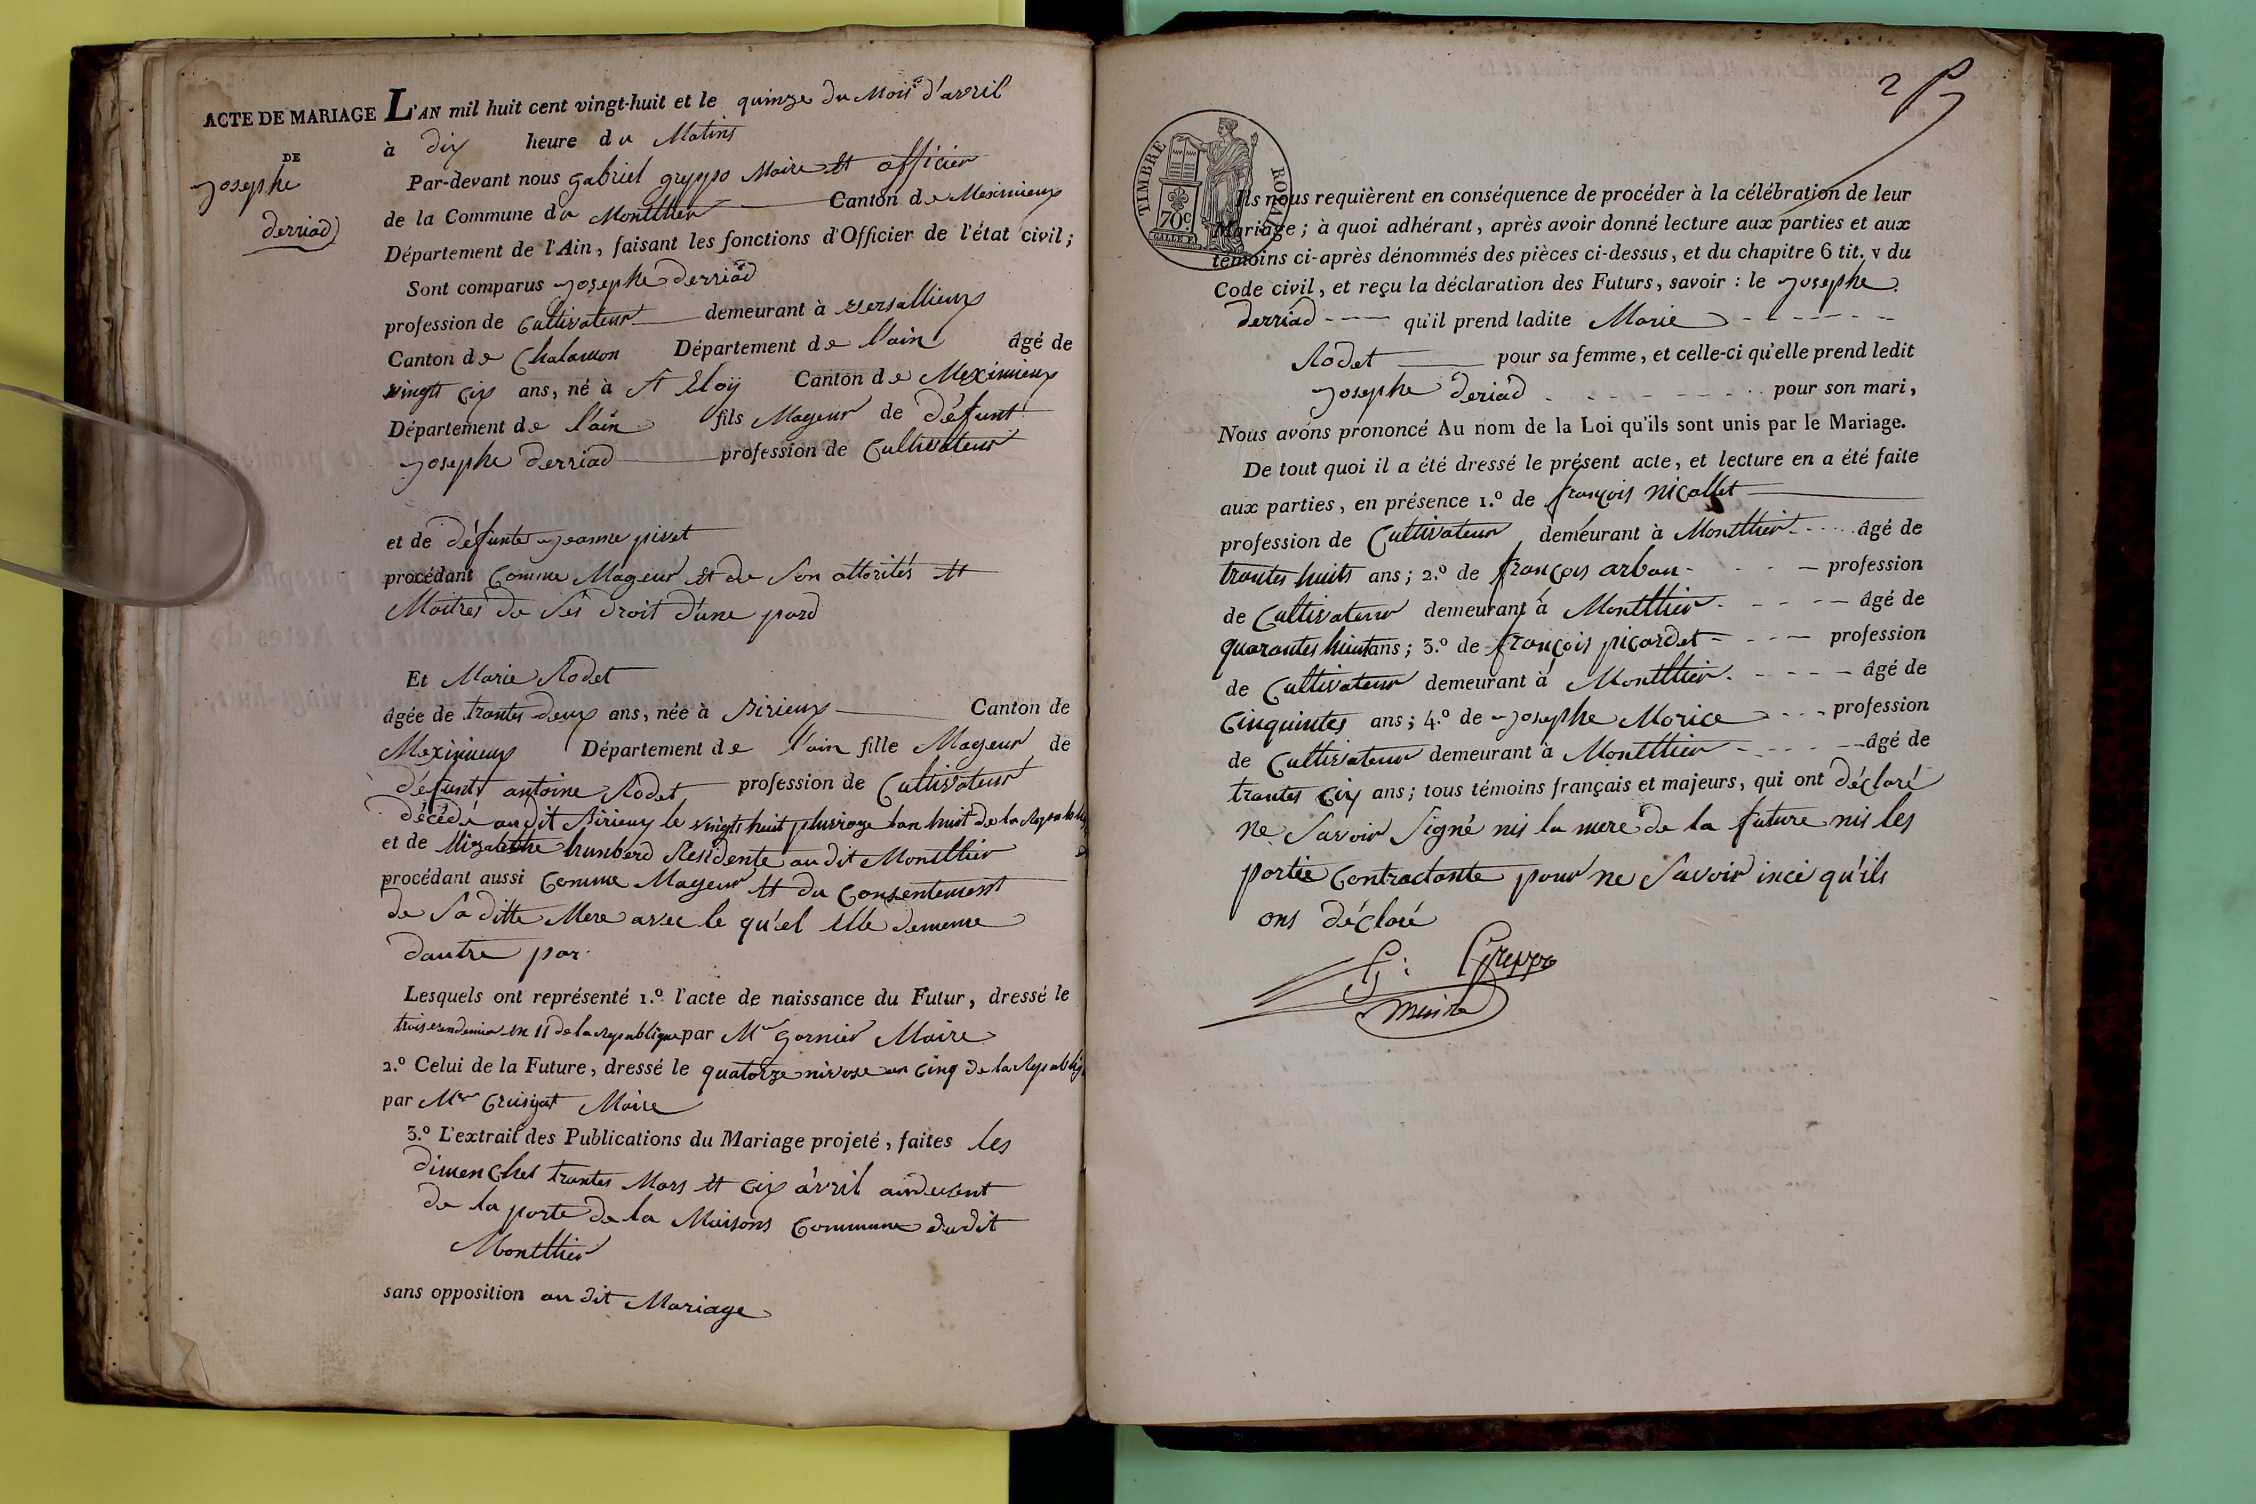 ACTE DE MARIAGE
DE
Josephe
derriad
L'AN mil huit cent vingt-huit et le quinze du Mois d'avril
à dix heure du Matins
Par-devant nous gabriel greppo Maire et officier
de la Commune du Monthier Canton de Meximieux
Département de l'Ain, faisant les fonctions d'Officier de l'état civil;
Sont comparus Josephe derriad
profession de Cultivateur demeurant à versallieux
Canton de Chalamon Département de l'ain âgé de
vingt cix ans, né à St Eloÿ Canton de Meximieux
Département de l'ain fils Mageur de défunt
Josephe derriad profession de Cultivateur
et de défunte Jeanne pivet
procédant Comme Mageur et de Son attorités et
Maitres de Ses droit d'une pard
Et Marie Rodet
âgée de trantes deux ans, née à Birieux Canton de
Meximieux Département de l'ain fille Mageur de
défunt antoine Rodet profession de Cultivateur
décédé audit Birieux le vingts huit pluviose lan huit de la Republiq
et de humberd Residente audit Monthier
procédant aussi Comme Mageur et du Consentement
de Sa ditte Mere avec le qu'el elle demeure
dautre par
Lesquels ont représenté 1.º l'acte de naissance du Futur, dressé le
trois vendemier en 11 de la Republique par Mr Garnier Maire
2.º Celui de la Future, dressé le quatorze nivose an Cinq de la Republiq
par Mr Cruisyat Maire
3.º L'extrait des Publications du Mariage projeté, faites les
dimenches trantes Mars et cix avril audevent
de la porte de la Maisons Commune dudit
Monthier
sans opposition audit Mariage
2
TIMBRE ROYAL
70c
Ils nous requièrent en conséquence de procéder à la célébration de leur
Mariage; à quoi adhérant, après avoir donné lecture aux parties et aux
témoins ci-après dénommés des pièces ci-dessus, et du chapitre 6 tit. v du
Code civil, et reçu la déclaration des Futurs, savoir: le Josephe
derriad qu'il prend ladite Marie
Rodet pour sa femme, et celle-ci qu'elle prend ledit
Josephe deriad pour son mari,
Nous avons prononcé Au nom de la Loi qu'ils sont unis par le Mariage.
De tout quoi il a été dressé le présent acte, et lecture en a été faite
aux parties, en présence 1.º de françois nicollet
profession de Cultivateur demeurant à Monthier âgé de
trantes huits ans; 2.º de françois arban profession
de Cultivateur demeurant à Monthier âgé de
quarantes huit ans; 3.º de françois picardet profession
de Cultivateur demeurant à Monthier âgé de
Cinquintes ans; 4.º de Josephe Morice profession
de Cultivateur demeurant à Monthier âgé de
trantes cix ans; tous témoins français et majeurs, qui ont déclaré
ne Savoir Signé nis la mere de la future nis les
partie Contractante pour ne Savoir inci qu'ils
ons déclaré
G: Greppo
maire